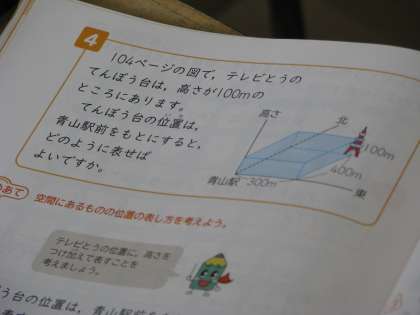 4
104ページの図で,テレビとうの
てんぼう台は,高さが100mの
ところにあります。
てんぼう台の位置は,
青山駅前をもとにすると,
どのように表せば
よいですか。
高さ
北
100m
400m
東
青山駅 300m
めあて
空間にあるものの位置の表し方を考えよう。
テレビとうの位置に,高さを
つけ加えて表すことを
考えましょう。
う台の位置は,青山駅前を